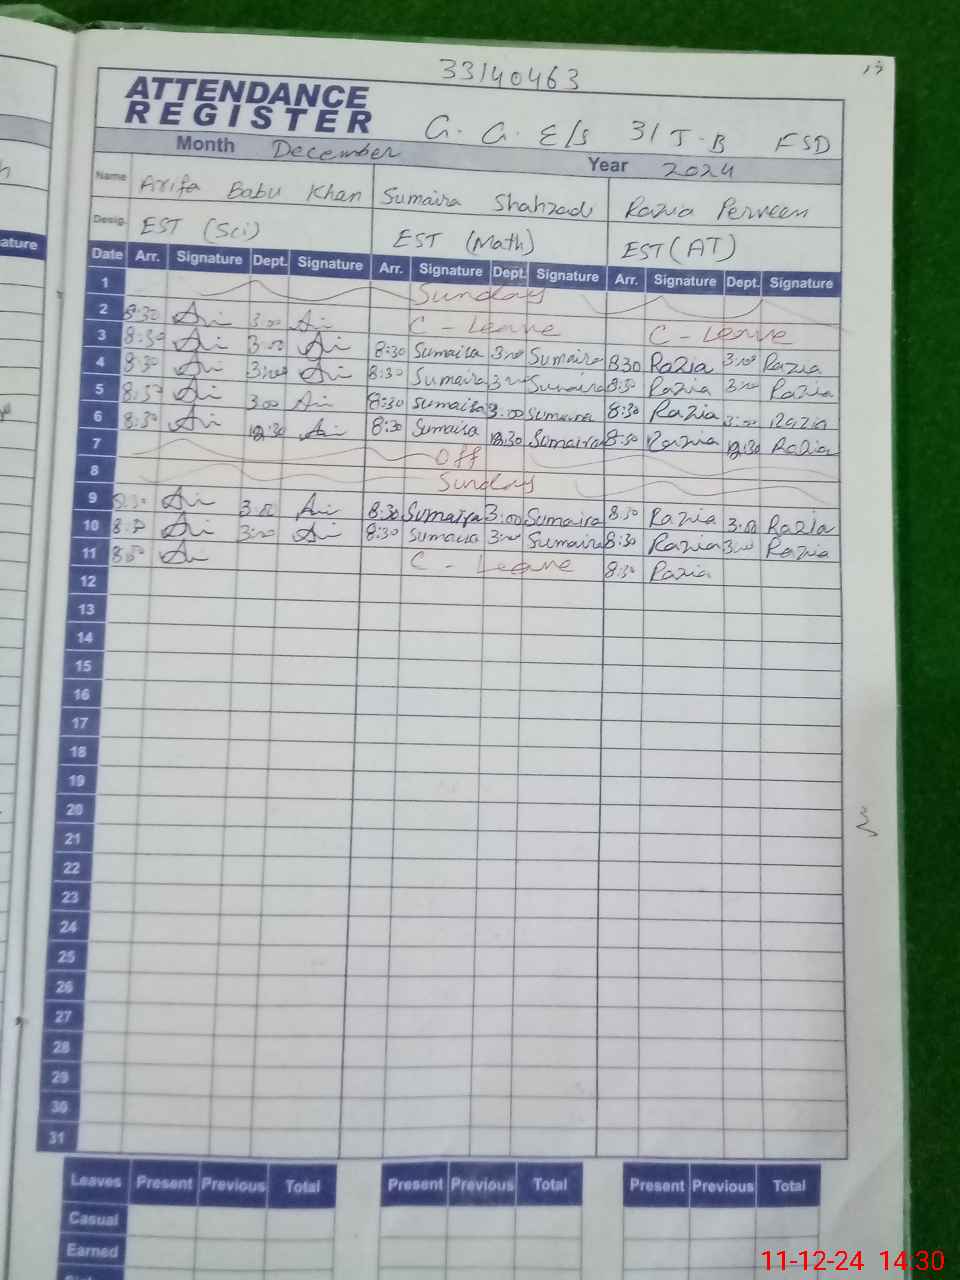 33140463
ATTENDANCE
REGISTER
G. G. E/S 31 J-B FSD
Month December Year 2024
Name Arifa Babu Khan Sumaira Shahzadi Razia Perveen
Desig. EST (Sci) EST (Math) EST (AT)
Date Arr. Signature Dept. Signature Arr. Signature Dept. Signature Arr. Signature Dept. Signature
1 Sunday
2 8:30 3:00 C - Leave C - Leave
3 8:30 3:00 8:30 Sumaira 3:00 Sumaira 8:30 Razia 3:00 Razia
4 8:30 3:00 8:30 Sumaira 3:00 Sumaira 8:30 Razia 3:00 Razia
5 8:30 3:00 8:30 Sumaira 3:00 Sumaira 8:30 Razia 3:00 Razia
6 8:30 12:30 8:30 Sumaira 12:30 Sumaira 8:30 Razia 12:30 Razia
7 Off
8 Sunday
9 8:30 3:00 8:30 Sumaira 3:00 Sumaira 8:30 Razia 3:00 Razia
10 8:30 3:00 8:30 Sumaira 3:00 Sumaira 8:30 Razia 3:00 Razia
11 8:30 C - Leave 8:30 Razia
12
13
14
15
16
17
18
19
20
21
22
23
24
25
26
27
28
29
30
31
Leaves Present Previous Total Present Previous Total Present Previous Total
Casual
Earned
11-12-24 14:30